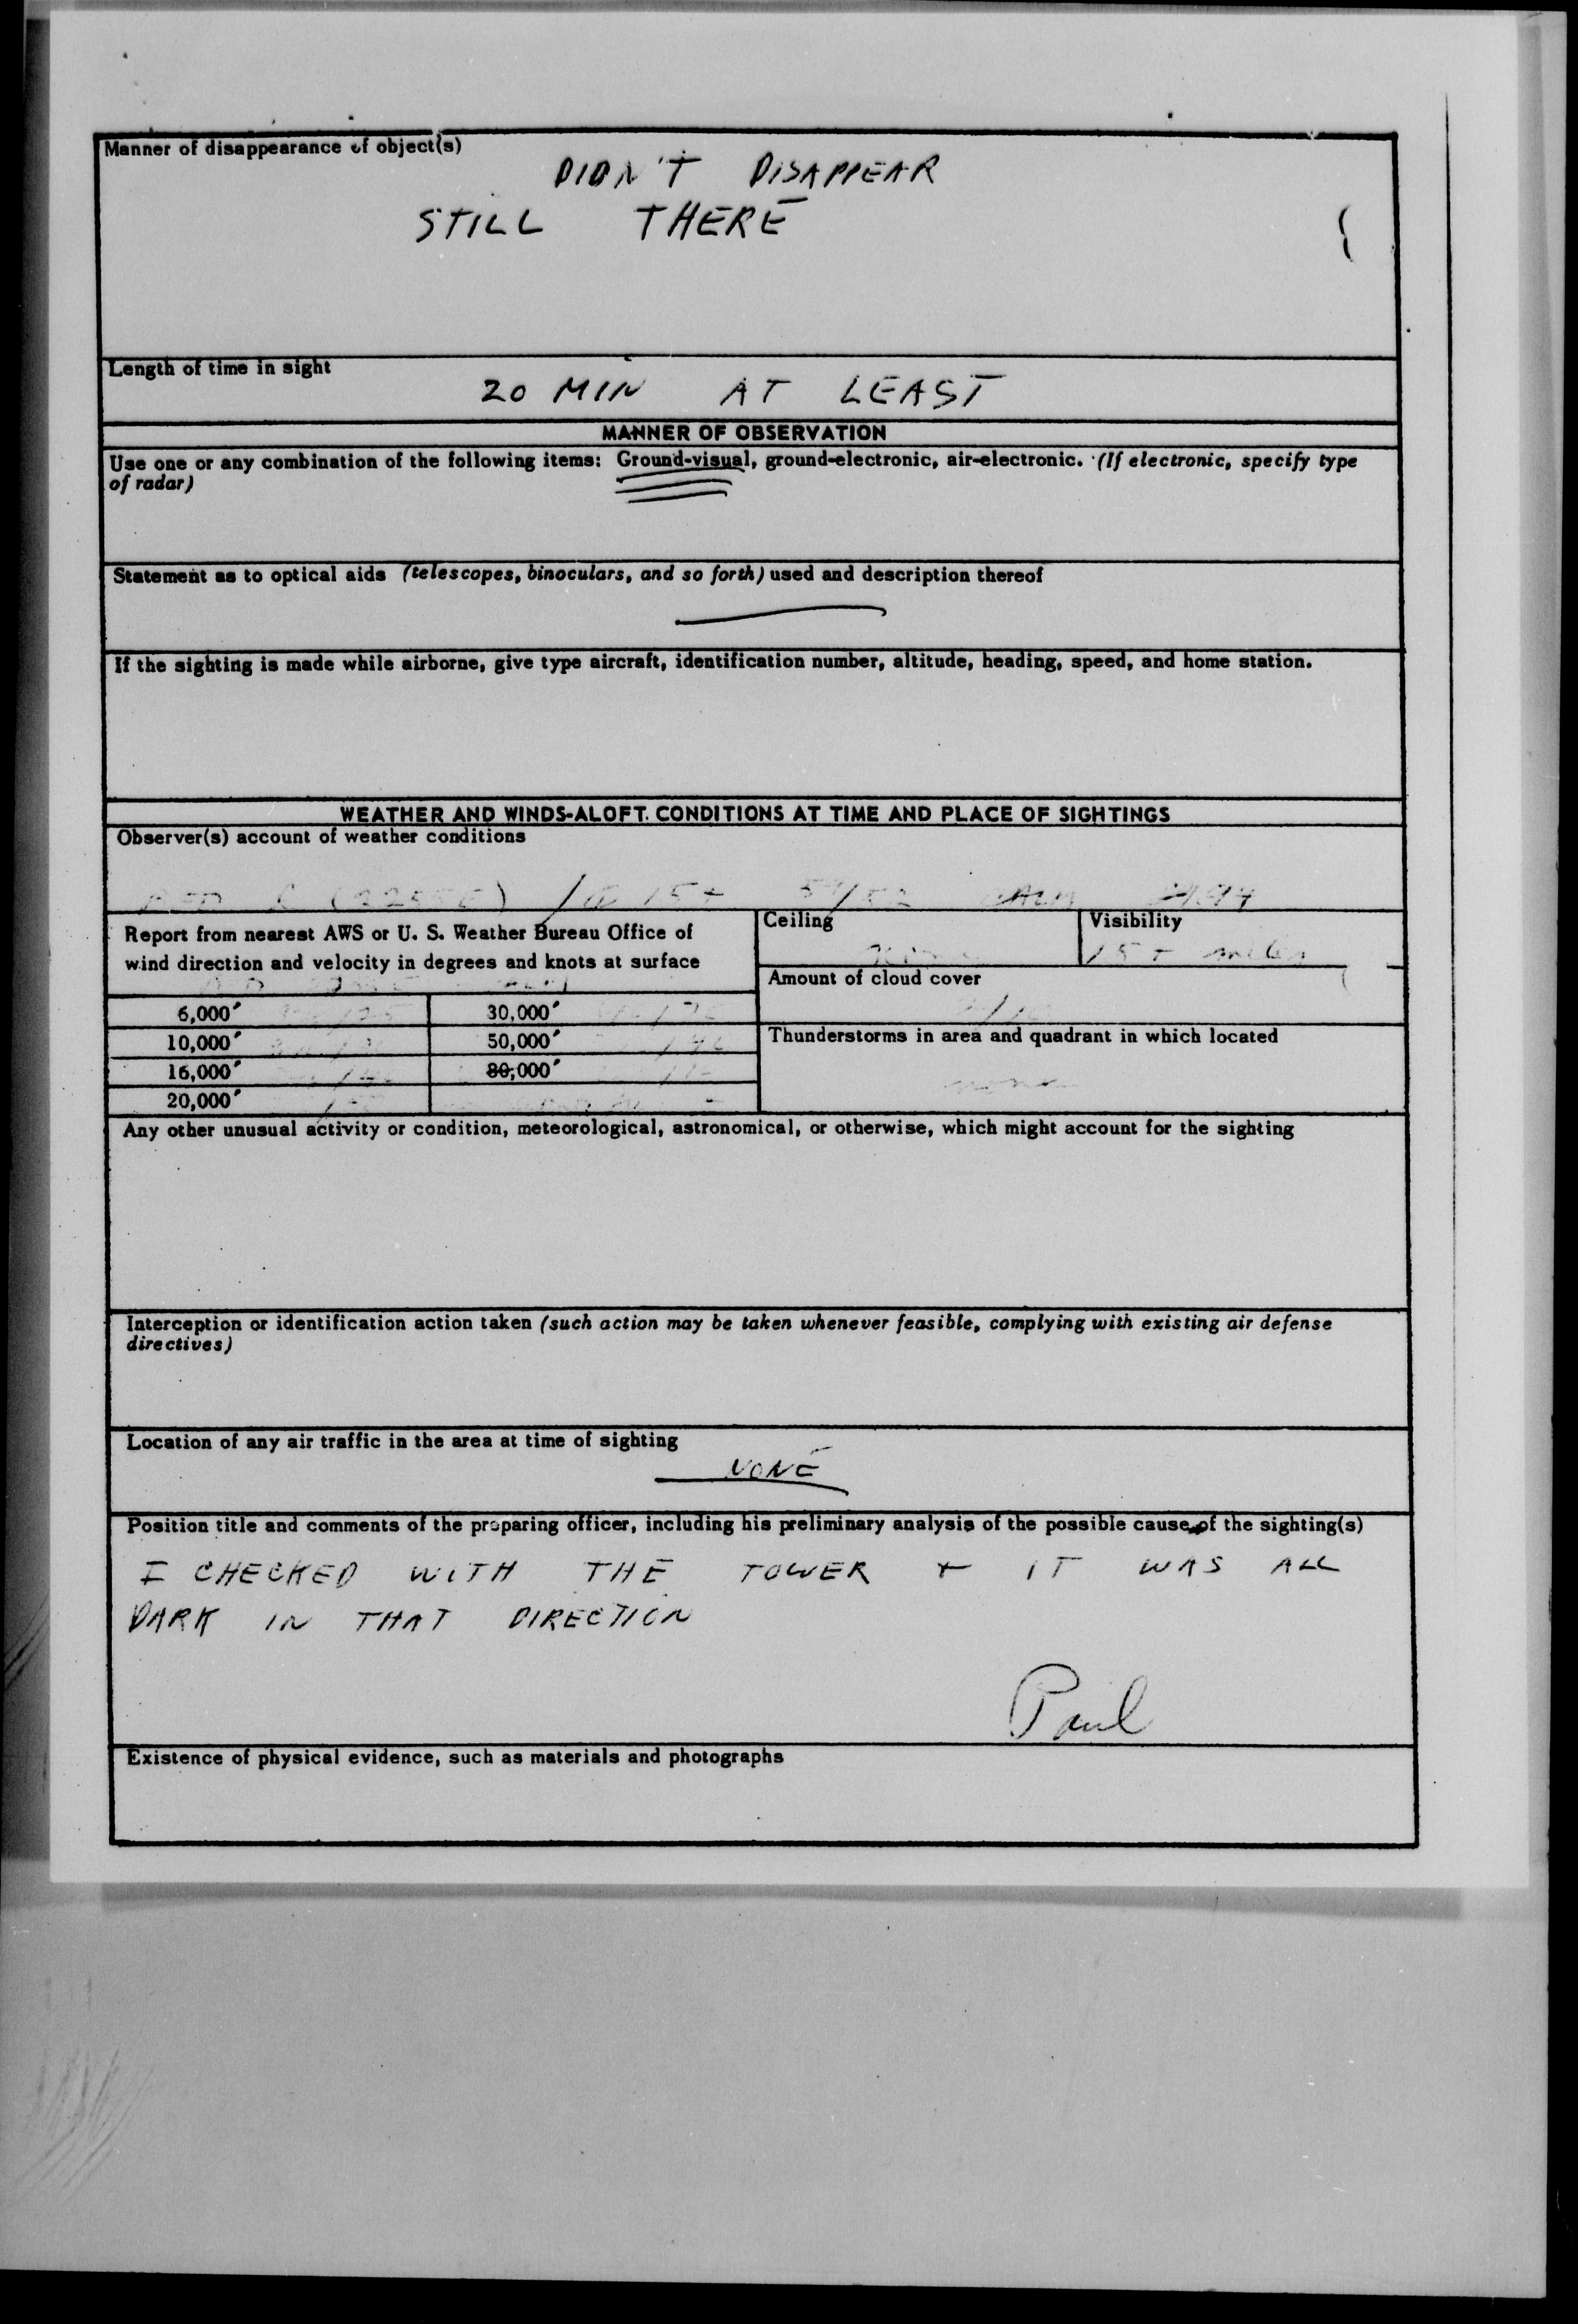 Manner of disappearance of object(s)
DIDN'T DISAPPEAR
STILL THERE
Length of time in sight
20 MIN AT LEAST
MANNER OF OBSERVATION
Use one or any combination of the following items: Ground-visual, ground-electronic, air-electronic. (If electronic, specify type
of radar)
Statement as to optical aids (telescopes, binoculars, and so forth) used and description thereof
If the sighting is made while airborne, give type aircraft, identification number, altitude, heading, speed, and home station.
WEATHER AND WINDS-ALOFT CONDITIONS AT TIME AND PLACE OF SIGHTINGS
Observer(s) account of weather conditions
15+ CALM
Report from nearest AWS or U. S. Weather Bureau Office of
wind direction and velocity in degrees and knots at surface
6,000'
10,000'
16,000'
20,000'
30,000'
50,000'
80,000'
Ceiling
Visibility
15 + miles
Amount of cloud cover
Thunderstorms in area and quadrant in which located
none
Any other unusual activity or condition, meteorological, astronomical, or otherwise, which might account for the sighting
Interception or identification action taken (such action may be taken whenever feasible, complying with existing air defense
directives)
Location of any air traffic in the area at time of sighting
NONE
Position title and comments of the preparing officer, including his preliminary analysis of the possible cause of the sighting(s)
I CHECKED WITH THE TOWER + IT WAS ALL
DARK IN THAT DIRECTION
Paul
Existence of physical evidence, such as materials and photographs